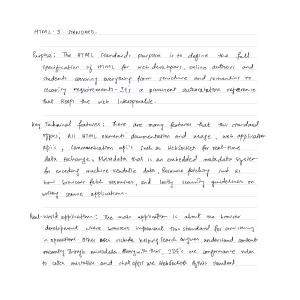 HTML-5 STANDARD.
Purpose: The HTML standard's purpose is to define the full
specification of HTML for web developers, online authors and
students covering everything from structure and semantics to
security requirements. It's a prominent authoritative reference
that keeps the web interoperable.
Key Technical features: There are many features that this standard
offers, All HTML elements documentation and usage, web application
api's, Communication api's such as WebSocket for real-time
data exchange, Microdata that is an embedded metadata system
for encoding machine-readable data, Resource fetching and
how browser fetch resources, and lastly security guidelines on
writing secure applications.
Real-world applications: The main application is about the browser
development where browsers implement this standard for consistency
in operations. Other uses include helping search engines understand content
through microdata. Along with this, IDE's use conformance rules
to catch mistakes and chat apps use WebSocket of this standard